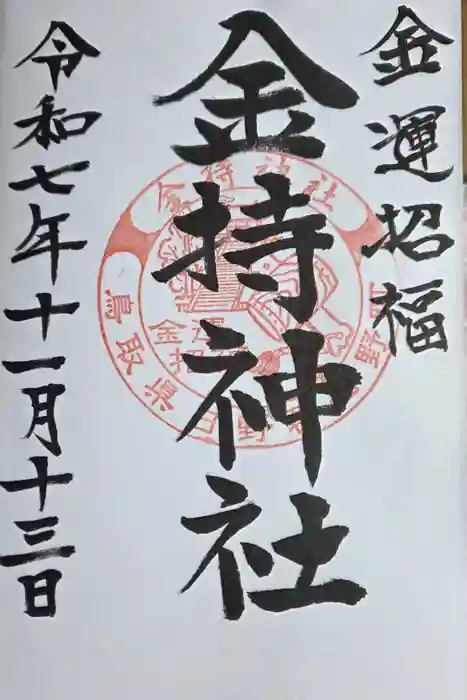 金運招福
金持神社
令和七年十一月十三日
金持神社
鳥取県日野
金運
招